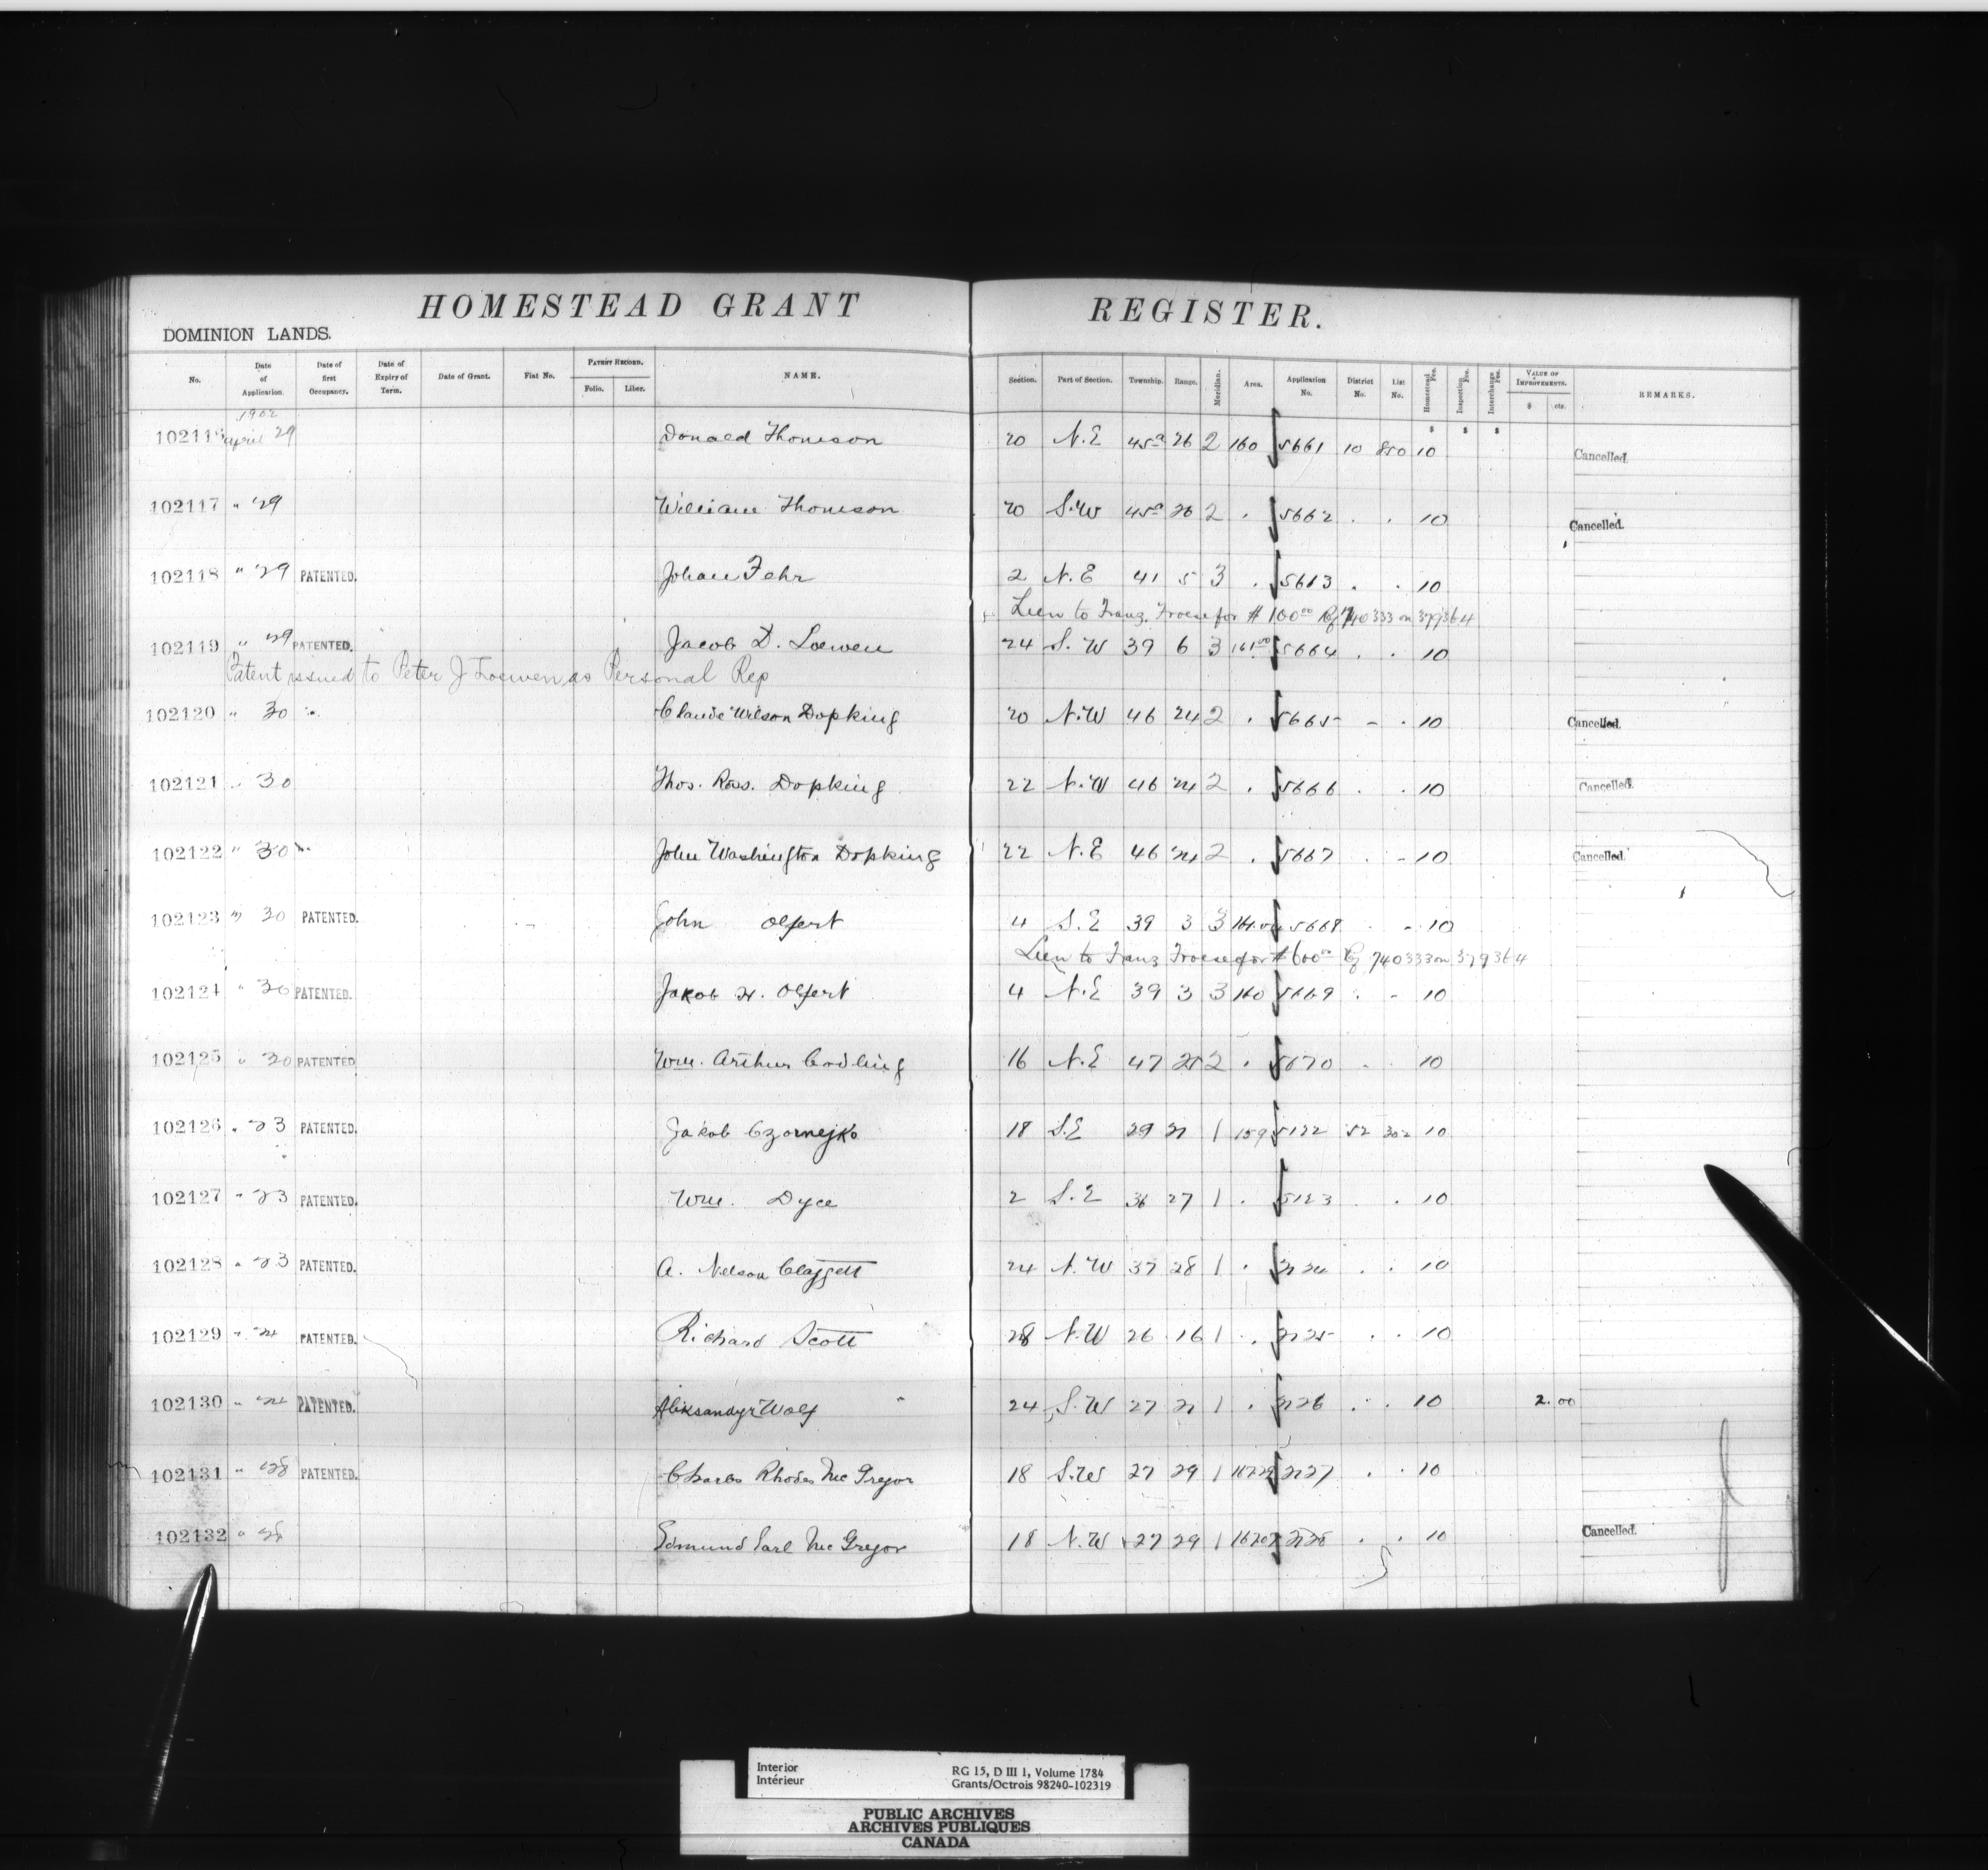 HOMESTEAD GRANT REGISTER.
DOMINION LANDS.
No. Date of Application. Date of first Occupancy. Date of Expiry of Term. Date of Grant. Fiat No. PATENT RECORD. Folio. Liber. NAME. Section. Part of Section. Township. Range. Meridian. Area. Application No. District No. List No. Homestead Fee. Inspection Fee. Interchange Fee. VALUE OF IMPROVEMENTS. $ cts. REMARKS.
1902
102116 April 29 Donald Thomson 20 N.E 45a 26 2 160 5661 10 850 10 Cancelled.
102117 " 29 William Thomson 20 S.W 45a 26 2 . 5662 . . 10 Cancelled.
102118 " 29 PATENTED. Johan Fehr 2 N.E 41 5 3 . 5663 . . 10
Lien to Franz Froese for $100.00 Rf 740333 on 379364
102119 " 29 PATENTED. Jacob D. Loewen 24 S.W 39 6 3 161.00 5664 . . 10
Patent issued to Peter J Loewen as Personal Rep
102120 " 30 Claude Wilson Dopking 20 N.W 46 24 2 . 5665 - . 10 Cancelled.
102121 " 30 Thos. Ross. Dopking 22 N.W 46 24 2 . 5666 . . 10 Cancelled.
102122 " 30 John Washington Dopking 22 N.E 46 24 2 . 5667 . - 10 Cancelled.
102123 " 30 PATENTED. John Olfert 4 S.E 39 3 3 5668 . - 10
Lien to Franz Froese for $600.00 Rf 740333 on 379364
102124 " 30 PATENTED. Jakob H. Olfert 4 N.E 39 3 3 160 5669 . - 10
102125 " 30 PATENTED Wm. Arthur Codling 16 N.E 47 25 2 . 5670 . . 10
102126 " 23 PATENTED. Jakob Czornejko 18 S.E 29 21 1 159 5122 52 302 10
102127 " 23 PATENTED. Wm. Dyce 2 S.E 36 27 1 . 5123 . 10
102128 " 23 PATENTED. A. Nelson Claggett 24 N.W 37 28 1 . . . 10
102129 " 24 PATENTED. Richard Scott 28 N.W 26 16 1 . . . 10
102130 " 24 PATENTED. Aleksandyr Wolf 24 S.W 27 21 1 . . . 10 2.00
102131 " 28 PATENTED. Charles Rhodes McGregor 18 S.W 27 29 1 . . 10
102132 " 28 Edmund Earl McGregor 18 N.W 27 29 1 . . 10 Cancelled.
Interior
Intérieur
RG 15, D III 1, Volume 1784
Grants/Octrois 98240-102319
PUBLIC ARCHIVES
ARCHIVES PUBLIQUES
CANADA